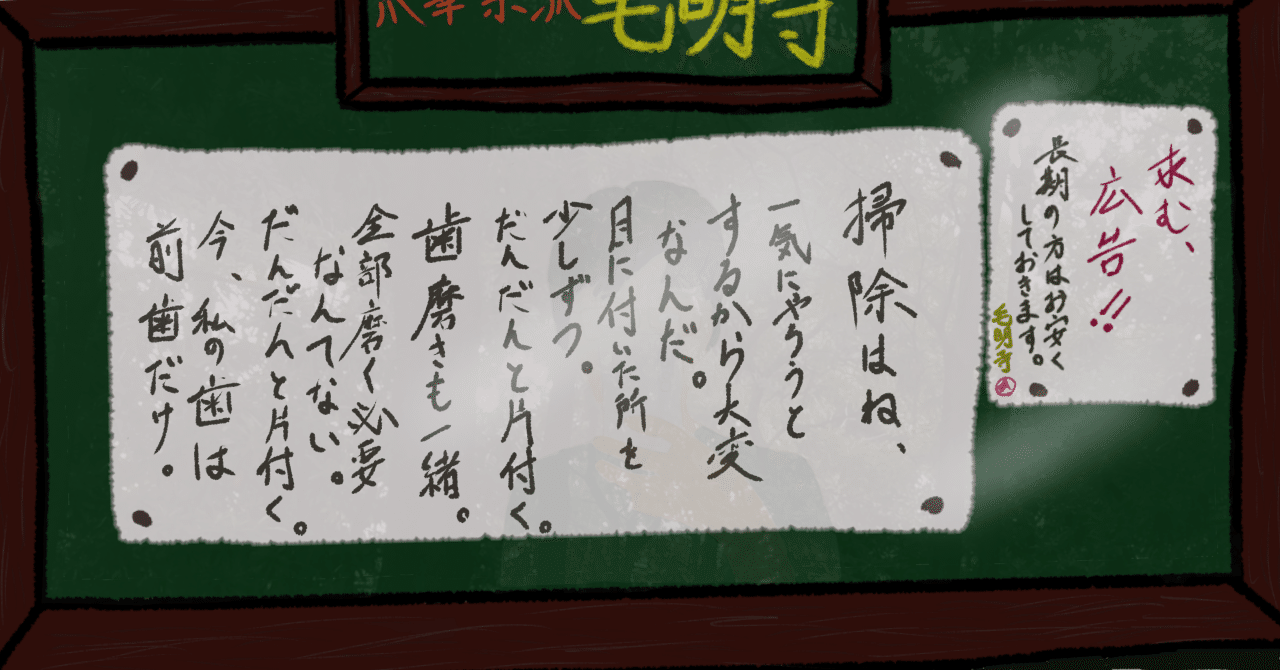 毛明寺
掃除はね、
一気にやろうと
するから大変
なんだ。
目に付いた所を
少しずつ。
だんだんと片付く。
歯磨きも一緒。
全部磨く必要
なんてない。
だんだんと片付く。
今、私の歯は
前歯だけ。
求む、
広告!!
長期の方はお安く
しておきます。
毛明寺